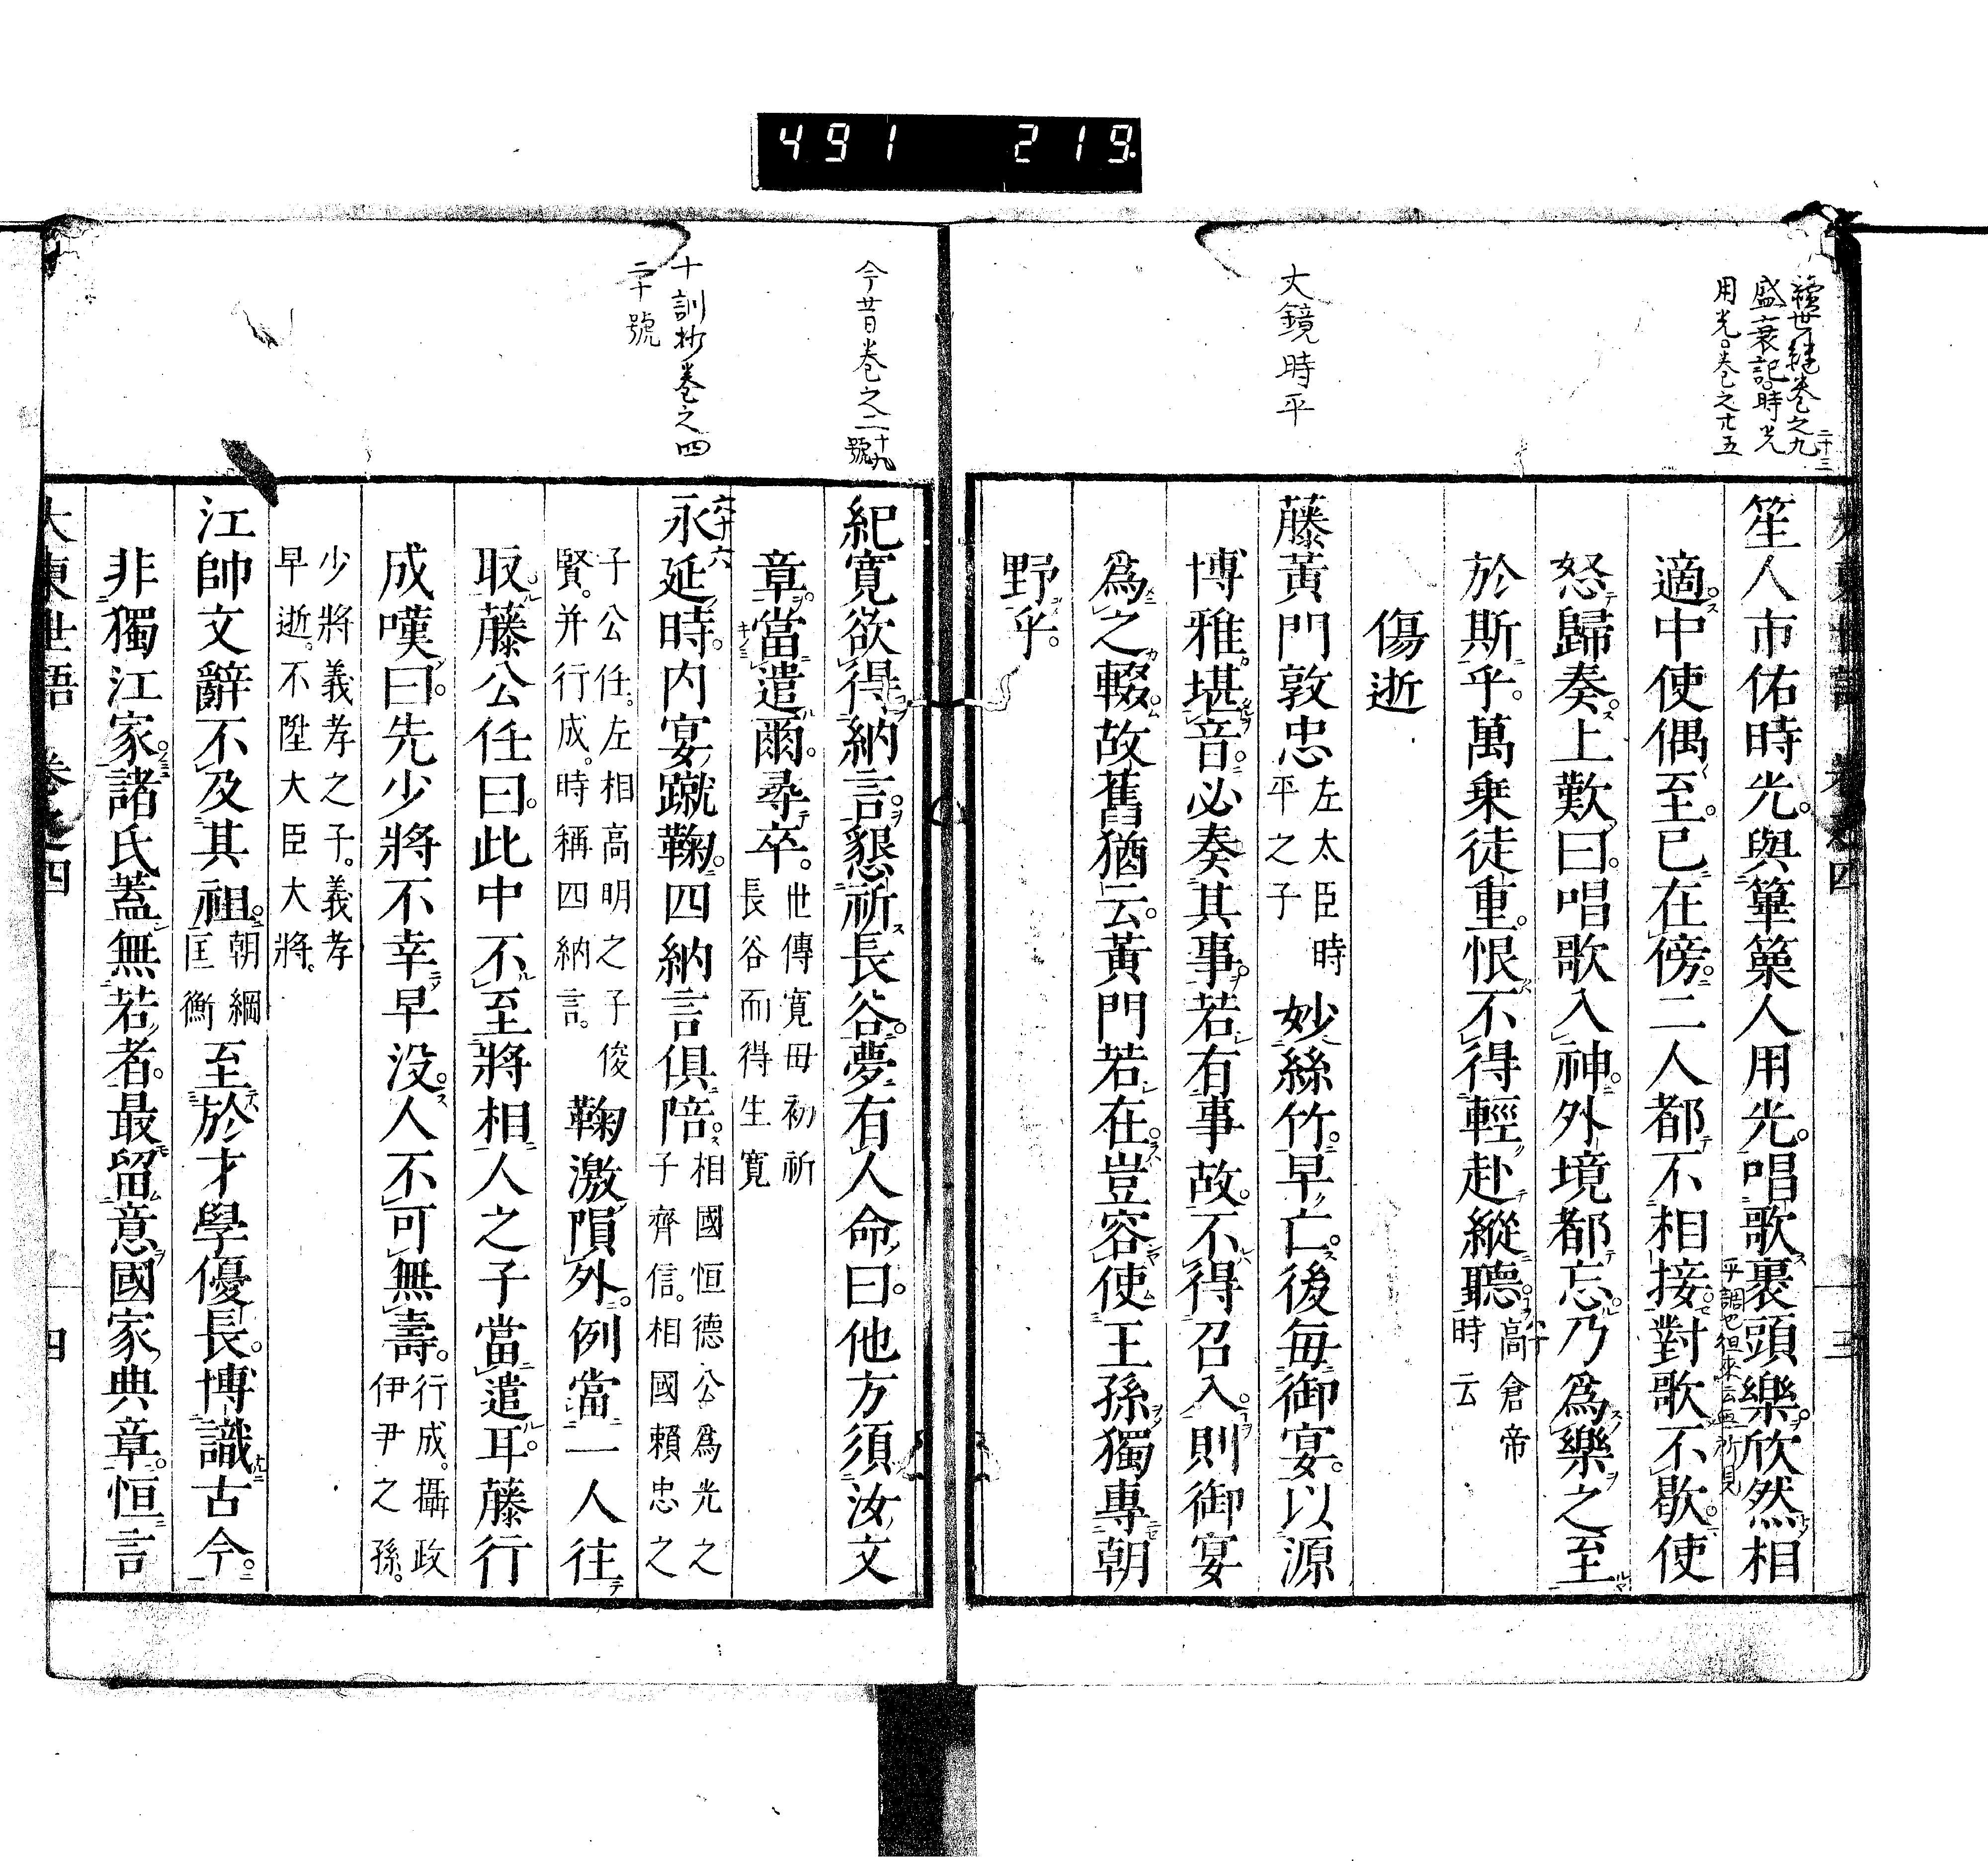 491 219.
續世継巻之九 二十三
盛衰記。時光
用光。巻之廿五
大鏡時平
笙人市佑時光。與篳篥人用光。唱歌裹頭樂。欣然相
平調也
適中使偶至。已在傍。二人都不相接。對歌不歇。使
怒歸奏。上歎曰。唱歌入神。外境都忘。乃爲樂之至
於斯乎。萬乗徒重。恨不得輕赴縱聽。高倉帝
時云
傷逝
藤黃門敦忠左太臣時
平之子妙絲竹。早亡。後毎御宴。以源
博雅堪音。必奏其事。若有事故。不得召入。則御宴
爲之輟。故舊猶云。黃門若在。豈容使王孫獨專朝
野乎。
今昔巻之二十九
號
十訓抄巻之四
二十號
紀寛欲得納言。懇祈長谷。夢有人命曰。他方須汝文
章。當遣爾。尋卒。世傳寛母初祈
長谷而得生寛
永延時。内宴蹴鞠。四納言俱陪。相國恒德公爲光之
子齊信。相國賴忠之
子公任。左相高明之子俊
賢。并行成。時稱四納言。鞠激隕外。例當一人往
取。藤公任曰。此中不至將相人之子當遣耳。藤行
成嘆曰。先少將不幸早没。人不可無壽。行成。攝政
伊尹之孫。
少將義孝之子。義孝
早逝。不陞大臣大將。
江帥文辭不及其祖。朝綱
匡衡至於才學優長。博識古今。
非獨江家。諸氏蓋無若者。最留意國家典章。恒言
大東世語 卷之四 四